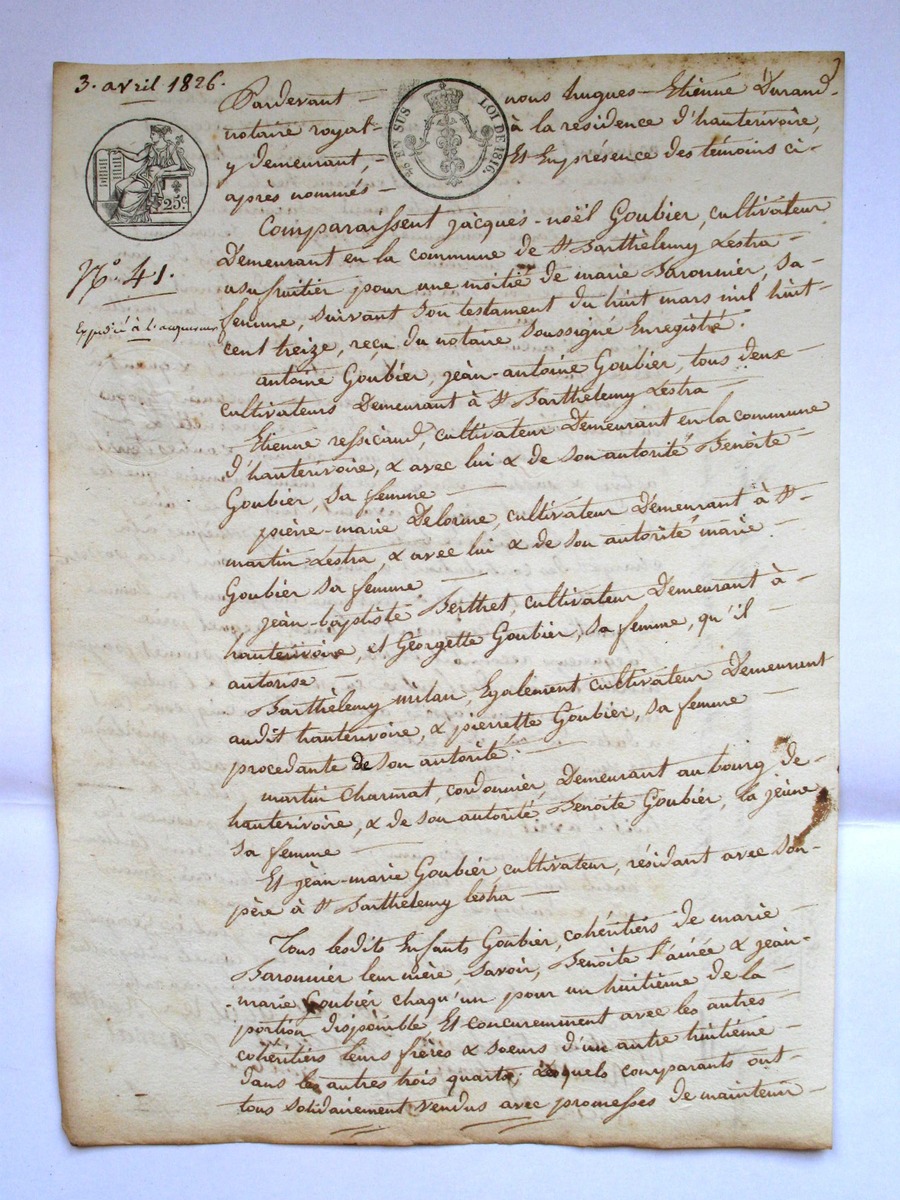 3. avril 1826.
Pardevant — nous hugues-Etienne Durand.
notaire royal — à la residence d'hauterivoire,
y demeurant, — Et En présence des témoins ci-
après nommés —
25 EN SUS LOI DE 1816.
25c.
N.o 41.
Expédié à l'acquereur
Comparaissent jacques-noël Goubier, cultivateur
Demeurant en la commune de St Barthèlemy Lestra —
usufruitier pour une moitié de marie Baronnier, sa-
femme, suivant son testament du huit mars mil huit-
cent treize, reçu du notaire soussigné Enregistré.
antoine Goubier, jean-antoine Goubier, tous deux —
cultivateurs Demeurant à St Barthèlemy Lestra —
Etienne ressicaud, cultivateur Demeurant en la commune
d'hauterivoire, & avec lui & de son autorité Benoite —
Goubier, sa femme —
pièrre-marie Delorme, cultivateur Demeurant à St-
martin Lestra, & avec lui & de son autorité marie —
Goubier sa femme —
jean-baptiste Berthet, cultivateur Demeurant à -
hauterivoire, et Géorgette Goubier, sa femme, qu'il —
autorise —
Barthèlemy milan, Egalement cultivateur Demeurant
audit hauterivoire, & pierrette Goubier, sa femme —
procedante de son autorité.
martin Charmat, cordonnier, Demeurant au bourg de-
hauterivoire, & de son autorité, Benoite Goubier, la jeune
sa femme —
Et jean-marie Goubier cultivateur, résidant avec son-
père à St Barthèlemy lestra —
Tous lesdits Enfants Goubier, cohéritiers de marie —
Baronnier leur mère, savoir, Benoite l'ainée & jean-
-marie Goubier chaqu'un pour un huitième de la —
portion disponible, Et concuremment avec les autres
cohéritiers leurs frères & soeurs d'un autre huitième —
dans les autres trois quarts; Lesquels comparants ont-
tous solidairement vendus avec promesses de maintenir —